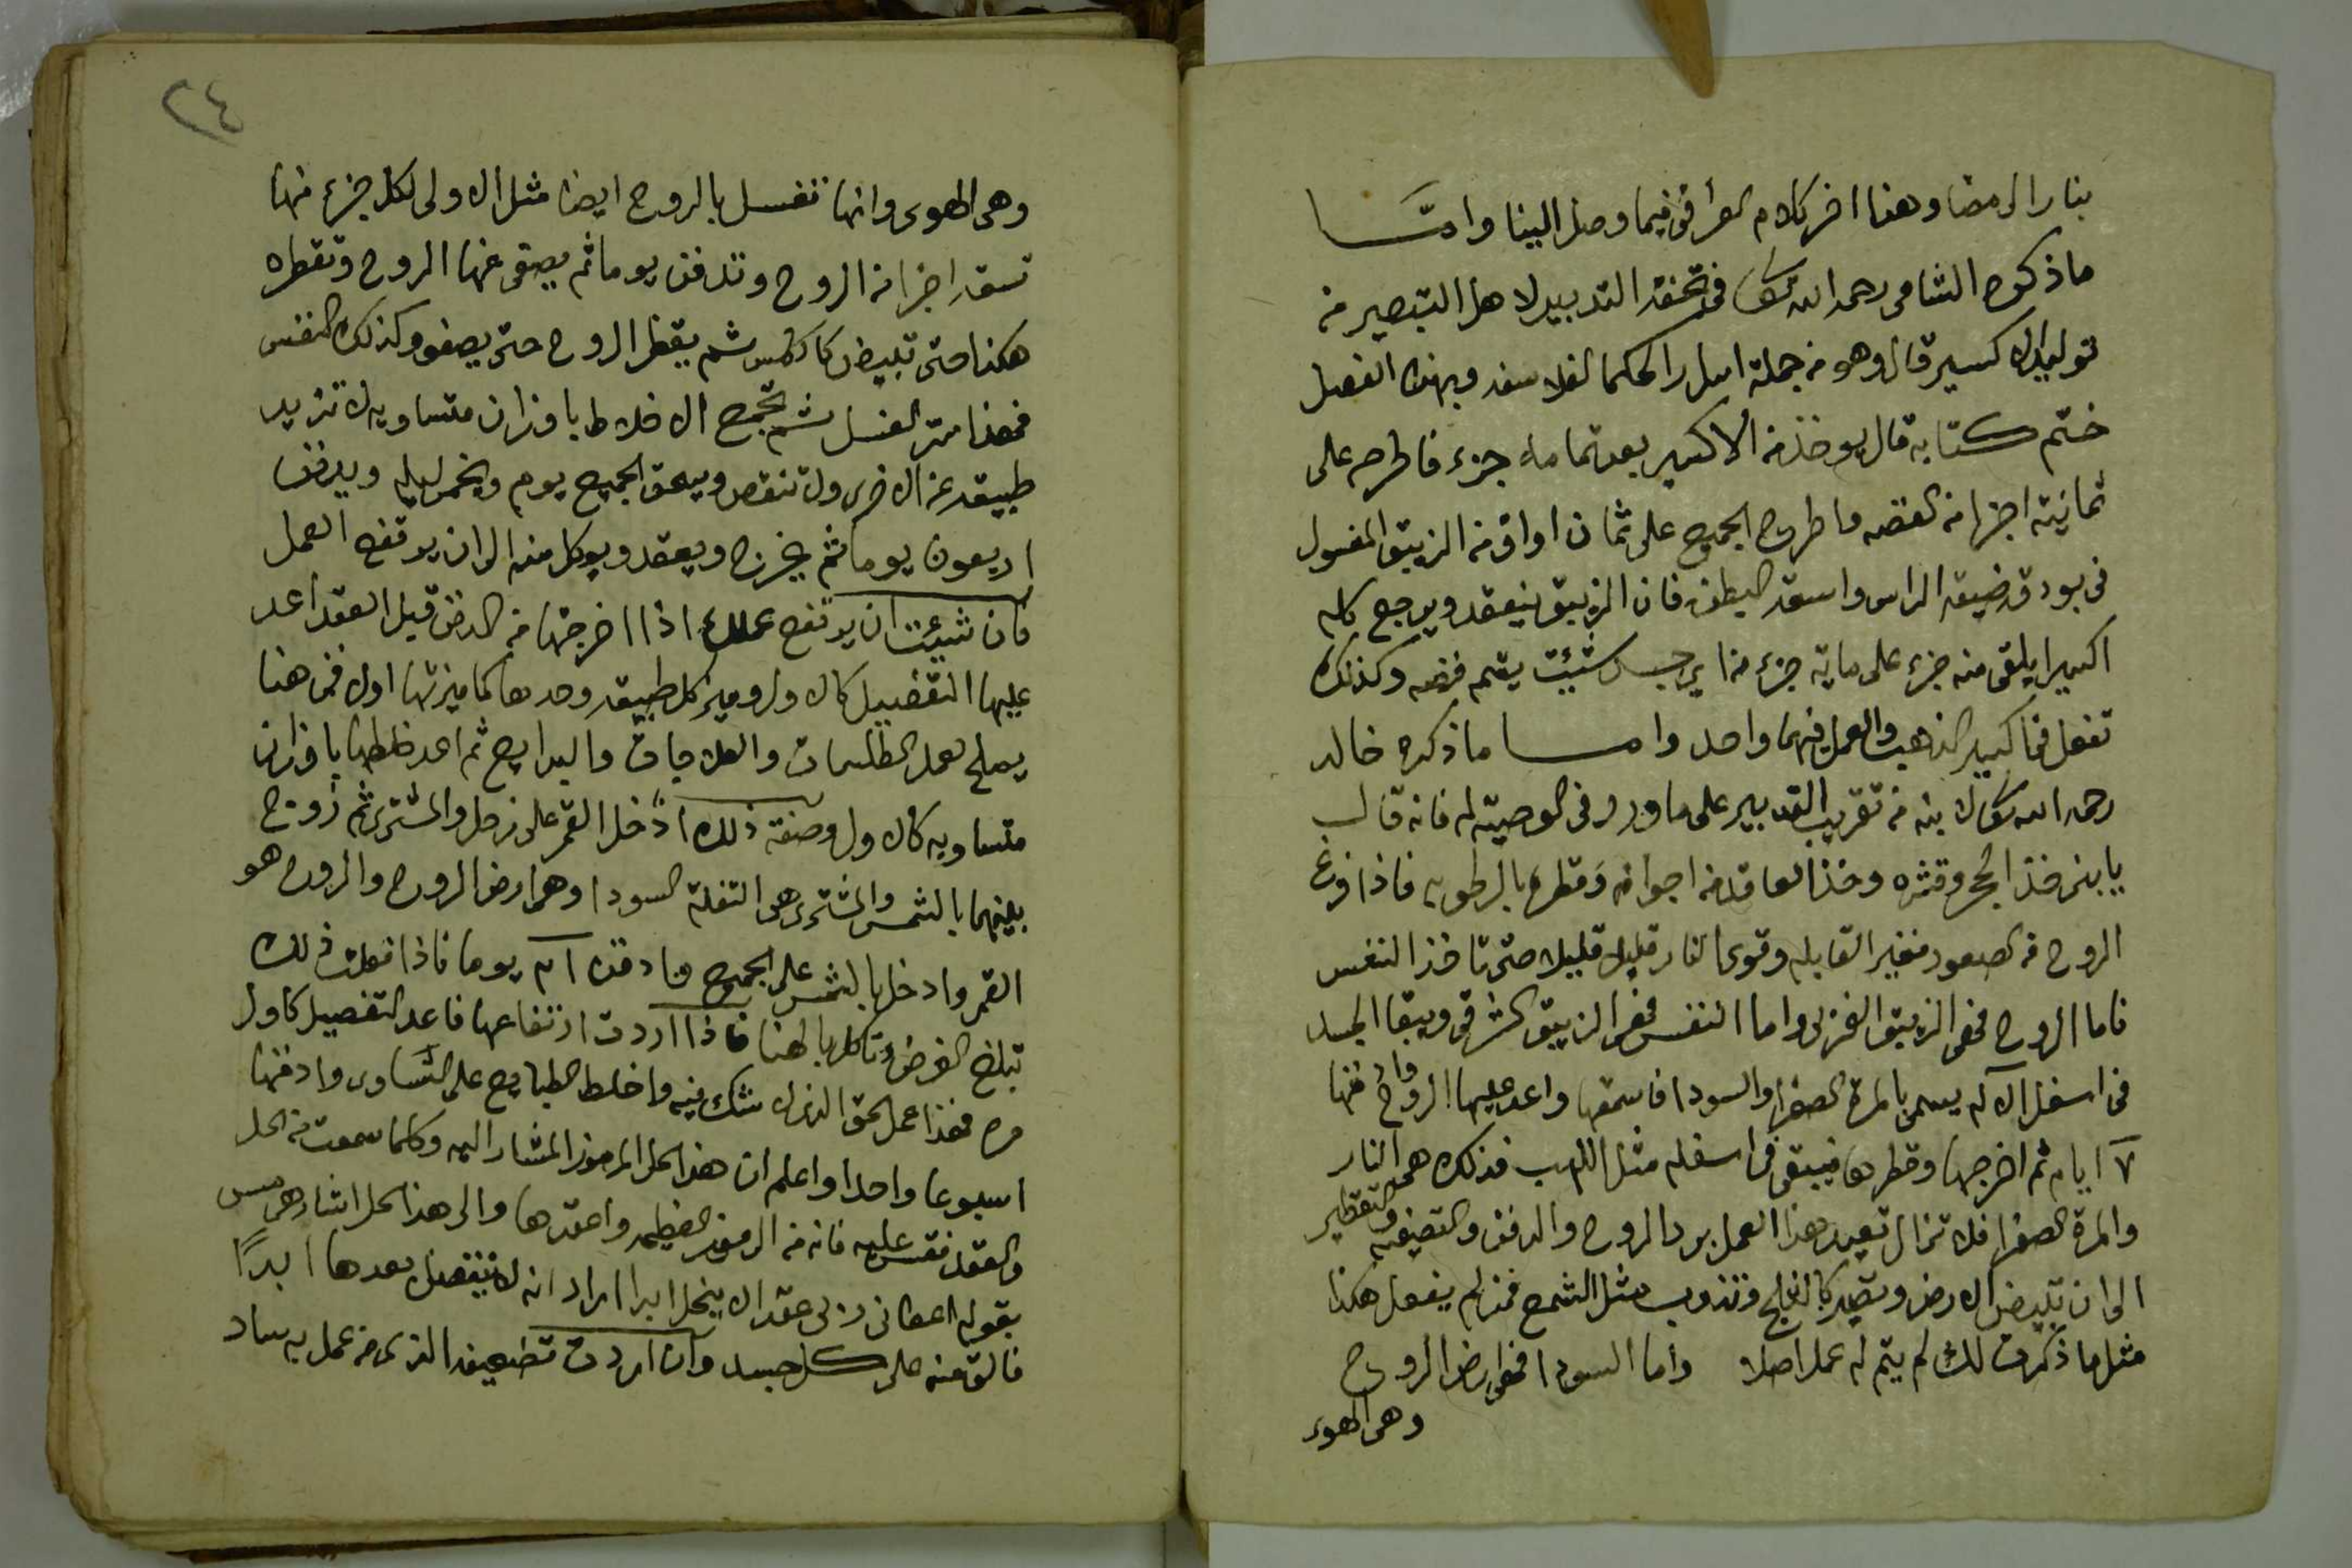 بنار الرمضا وهنا اخر كلام العراقى فيما وصل الينا وامــا
ماذكره الشامى رحمه الله تعا فى تحفة التدبير لاهل التبصير من
توليد الاكسير قال وهو من جملة اسرار الحكما الفلاسفه وبهذه الفصل
ختم كتابه قال يوخذ من الاكسير بعد تمامه جزء فاطرحه على
ثمانية اجزا من الفضه واطرح الجميع على ثمان اواق من الزيبق المغسول
فى بودقه ضيقة الراس واسعة البطن فان الزيبق ينعقد ويرجع كله
اكسيرا يلقى منه جزء على ماية جزء من اى جسد شئت يقم فضه وكذلك
تفعل فى اكسير الذهب والعمل فيهما واحد وامــا ماذكره خالد
رحمه الله تعا لابنه من تقريب التدبير على ماورد فى الوصية له فانه قال
يا بنى خذ الحجر وقشره وخذ العاقد من اجوافه وقطره بالرطوبه فاذا فرغ
الروح من الصعود فغير القابله وقوى النار قليلا قليلا حتى تاخذ النفس
فاما الروح فهى الزيبق الغربى واما النفس فهى الزيبق الشرقى ويبقا الجسد
فى اسفل الاله يسمى بالمرة الصفرا والسودا فاسحقها واعد عليها الروح وادفنها
٧ ايام ثم اخرجها وقطرها فيبقى فى اسفله مثل الذهب فذلك هى النار
والمرة الصفرا فلا تزال تعيد هذا العمل برد الروح والدفن والتصفيه والتقطير
الى ان تبيض الارض وتصير كالثلج وتذوب مثل الشمع فمن لم يفعل هكذا
مثل ما ذكرت لك لم يتم له عمل اصلا واما السودا فهى ارض الروح
وهى الهوى
٢٤
وهى الهوى وانها تغسل بالروح ايضا مثل الاولى لكل جزء منها
تسعة اجزا من الروح وتدفن يوما ثم يصفى عنها الروح وتقطره
هكذا حتى تبيض كالشمس ثم يقطر الروح حتى يصفو وكذلك النفس
فهذا سر الغسل ثم تجمع الاخلاط باوزان متساويه لا تزيد
طبيعة عن الاخرى ولا تنقص ويسحق الجميع يوم ويخمر ليله ويدفن
اربعون يوما ثم يخرج ويعقد ويوكل منه الى ان يرتفع العمل
فان شيئت ان يرتفع عملك اذا اخرجتها من الدفن قبل العقد اعد
عليها التفصيل كالاول وميز كل طبيعة وحدها كما ميزتها اول فمن هنا
يصلح لعمل الطلسمات والعلاجات والبرابى ثم اعد خلطها باوزان
متساويه كالاول وصفة ذلك ادخل القمر على زحل والمشترى ثم زوج
بينهما بالشمس والمشترى هى التفلة السودا وهى ارض الروح والروح هو
القمر وادخل بالشمس على الجميع وادفنه ٤١ يوما فاذا فعلت ذلك
تبلغ الغرض وتاكل بالهنا فاذا اردت ارتفاعها فاعد التفصيل كاول
مره فهذا عمل الحق الذى لا شك فيه واخلط الطبايع على التساوى وادفنها
اسبوعا واحدا واعلم ان هذا الحل المرموز المشار اليه وكلما سمعت من الحل
والعقد فقس عليه فانه من الرموز العظيمه واعقدها والى هذا الحل اشار هرمس
بقوله اعطانى ربى عقدا لا ينحل ابدا اراد انه لا ينفصل بعدها ابدًا
فالق منه على كل جسد وان اردت تضعيف الذى من عمل به ساد